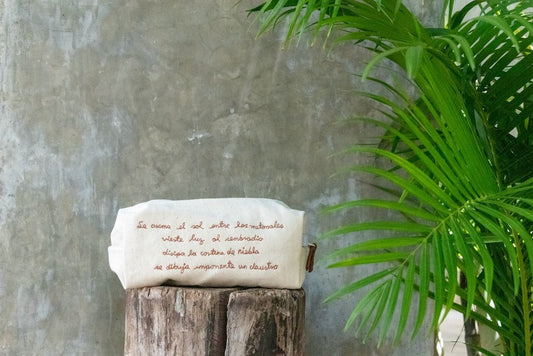 Se asoma el sol entre los matorrales
viste luz al sembradío
disipa la cortina de niebla
se dibuja imponente un claustro